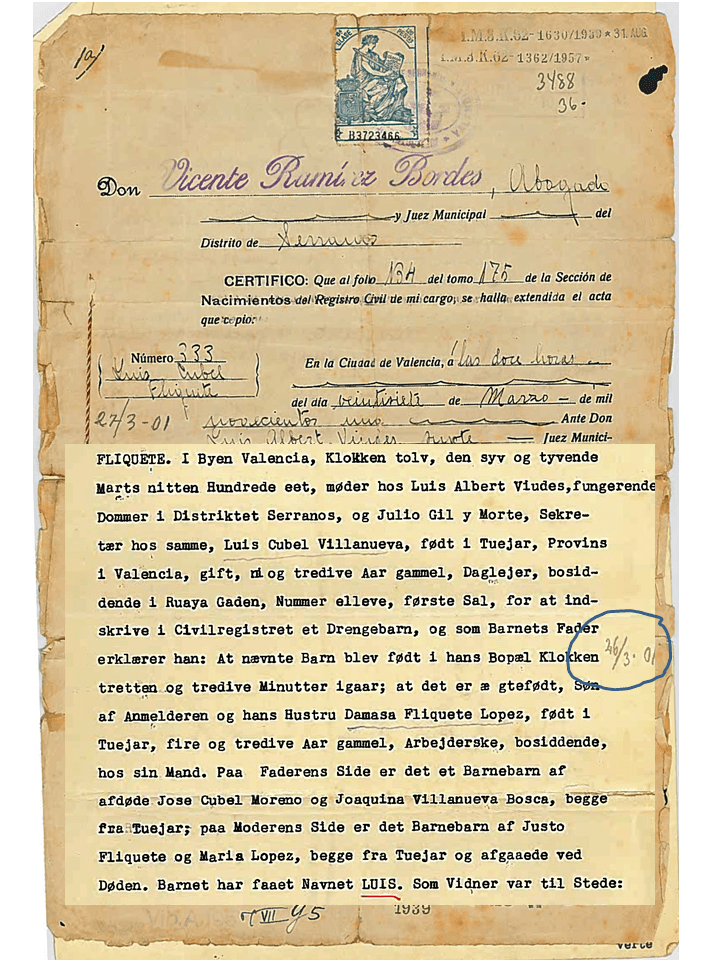 I.M.B.K.62-1630/1939 * 31. AUG
I.M.B.K.62-1362/1957 *
3488
36.
B3723466
Don Vicente Ramírez Bordes, Abogado
y Juez Municipal del
Distrito de Serranos
CERTIFICO: Que al folio 134 del tomo 175 de la Sección de
Nacimientos del Registro Civil de mi cargo, se halla extendida el acta
que copio:
Número 333
Luis Cubel
Fliquete
27/3-01
En la Ciudad de Valencia, á las doce horas
del día veintisiete de Marzo de mil
novecientos uno Ante Don
Luis Albert Viudes, Juez Munici-
FLIQUETE. I Byen Valencia, Klokken tolv, den syv og tyvende
Marts nitten Hundrede eet, møder hos Luis Albert Viudes,fungerende
Dommer i Distriktet Serranos, og Julio Gil y Morte, Sekre-
tær hos samme, Luis Cubel Villanueva, født i Tuejar, Provins
i Valencia, gift, ni og tredive Aar gammel, Daglejer, bosid-
dende i Ruaya Gaden, Nummer elleve, første Sal, for at ind-
skrive i Civilregistret et Drengebarn, og som Barnets Fader
erklærer han: At nævnte Barn blev født i hans Bopæl Klokken
26/3-01
tretten og tredive Minutter igaar; at det er æ gtefødt, Søn
af Anmelderen og hans Hustru Damasa Fliquete Lopez, født i
Tuejar, fire og tredive Aar gammel, Arbejderske, bosiddende,
hos sin Mand. Paa Faderens Side er det et Barnebarn af
afdøde Jose Cubel Moreno og Joaquina Villanueva Bosca, begge
fra Tuejar; paa Moderens Side er det Barnebarn af Justo
Fliquete og Maria Lopez, begge fra Tuejar og afgaaede ved
Døden. Barnet har faaet Navnet LUIS. Som Vidner var til Stede:
VII 45
1939
verte